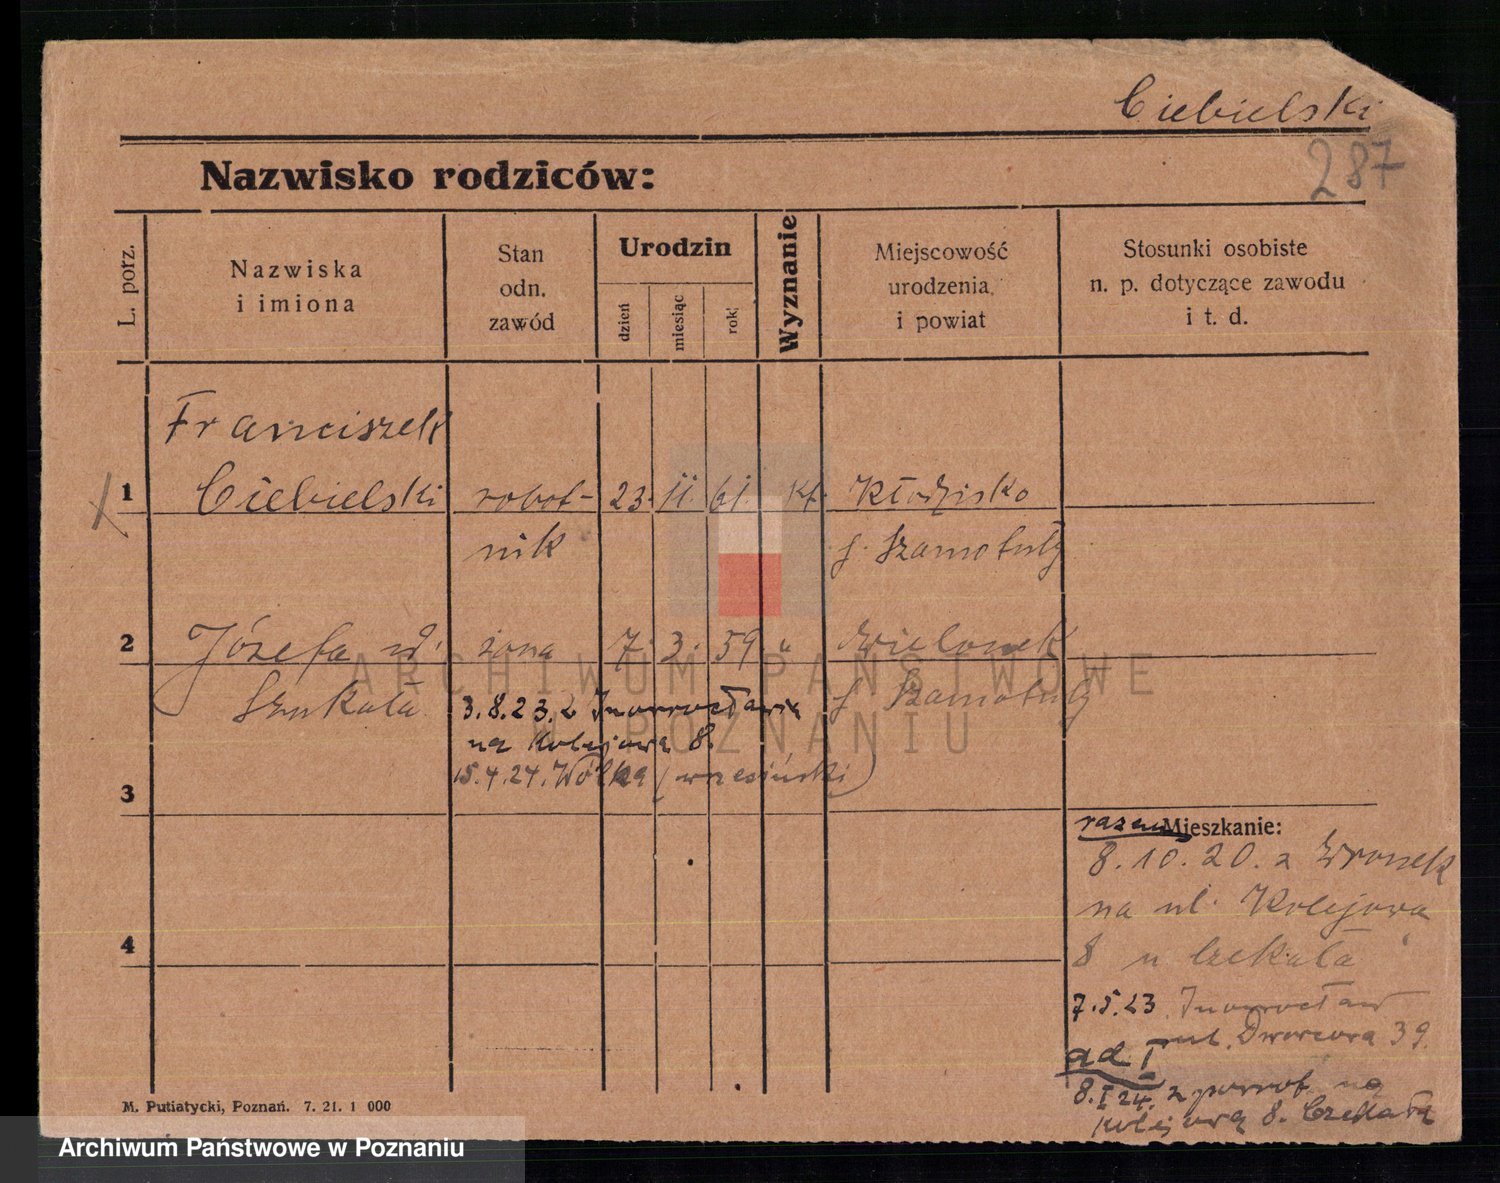 Ciebielski
287
Nazwisko rodziców:
L. porz.
Nazwiska
i imiona
Stan
odn.
zawód
Urodzin
dzień
miesiąc
rok
Wyznanie
Miejscowość
urodzenia
i powiat
Stosunki osobiste
n. p. dotyczące zawodu
i t. d.
Franciszek
1 Ciebielski robot- 23. 11. 61. kt. Kłodzisko
nik Szamotuły
2 Józefa żona 7. 3. 59 " Zielonek
Szukała Szamotuły
3.8.23. z Inowrocławia
na Kolejową 8.
15.4.24. Wólka (wrzesiński)
3
razem Mieszkanie:
8.10.20. z Wronek
na ul. Kolejowa
4
8 u Czekała
7.5.23 Inowrocław
ul. Dworcowa 39.
ad I
8.I 24. z powrot. na
Kolejową 8. Czekała
M. Putiatycki, Poznań. 7. 21. 1 000
ARCHIWUM PAŃSTWOWE
W POZNANIU
Archiwum Państwowe w Poznaniu